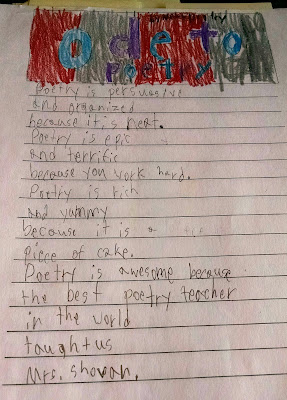 Ode to
poetry
Poetry is persuasive
and organized
because it is neat.
Poetry is epic
and terrific
because you work hard.
Poetry is rich
and yummy
because it is a
piece of cake.
Poetry is awesome because
the best poetry teacher
in the world
taught us
Mrs. Shovan.